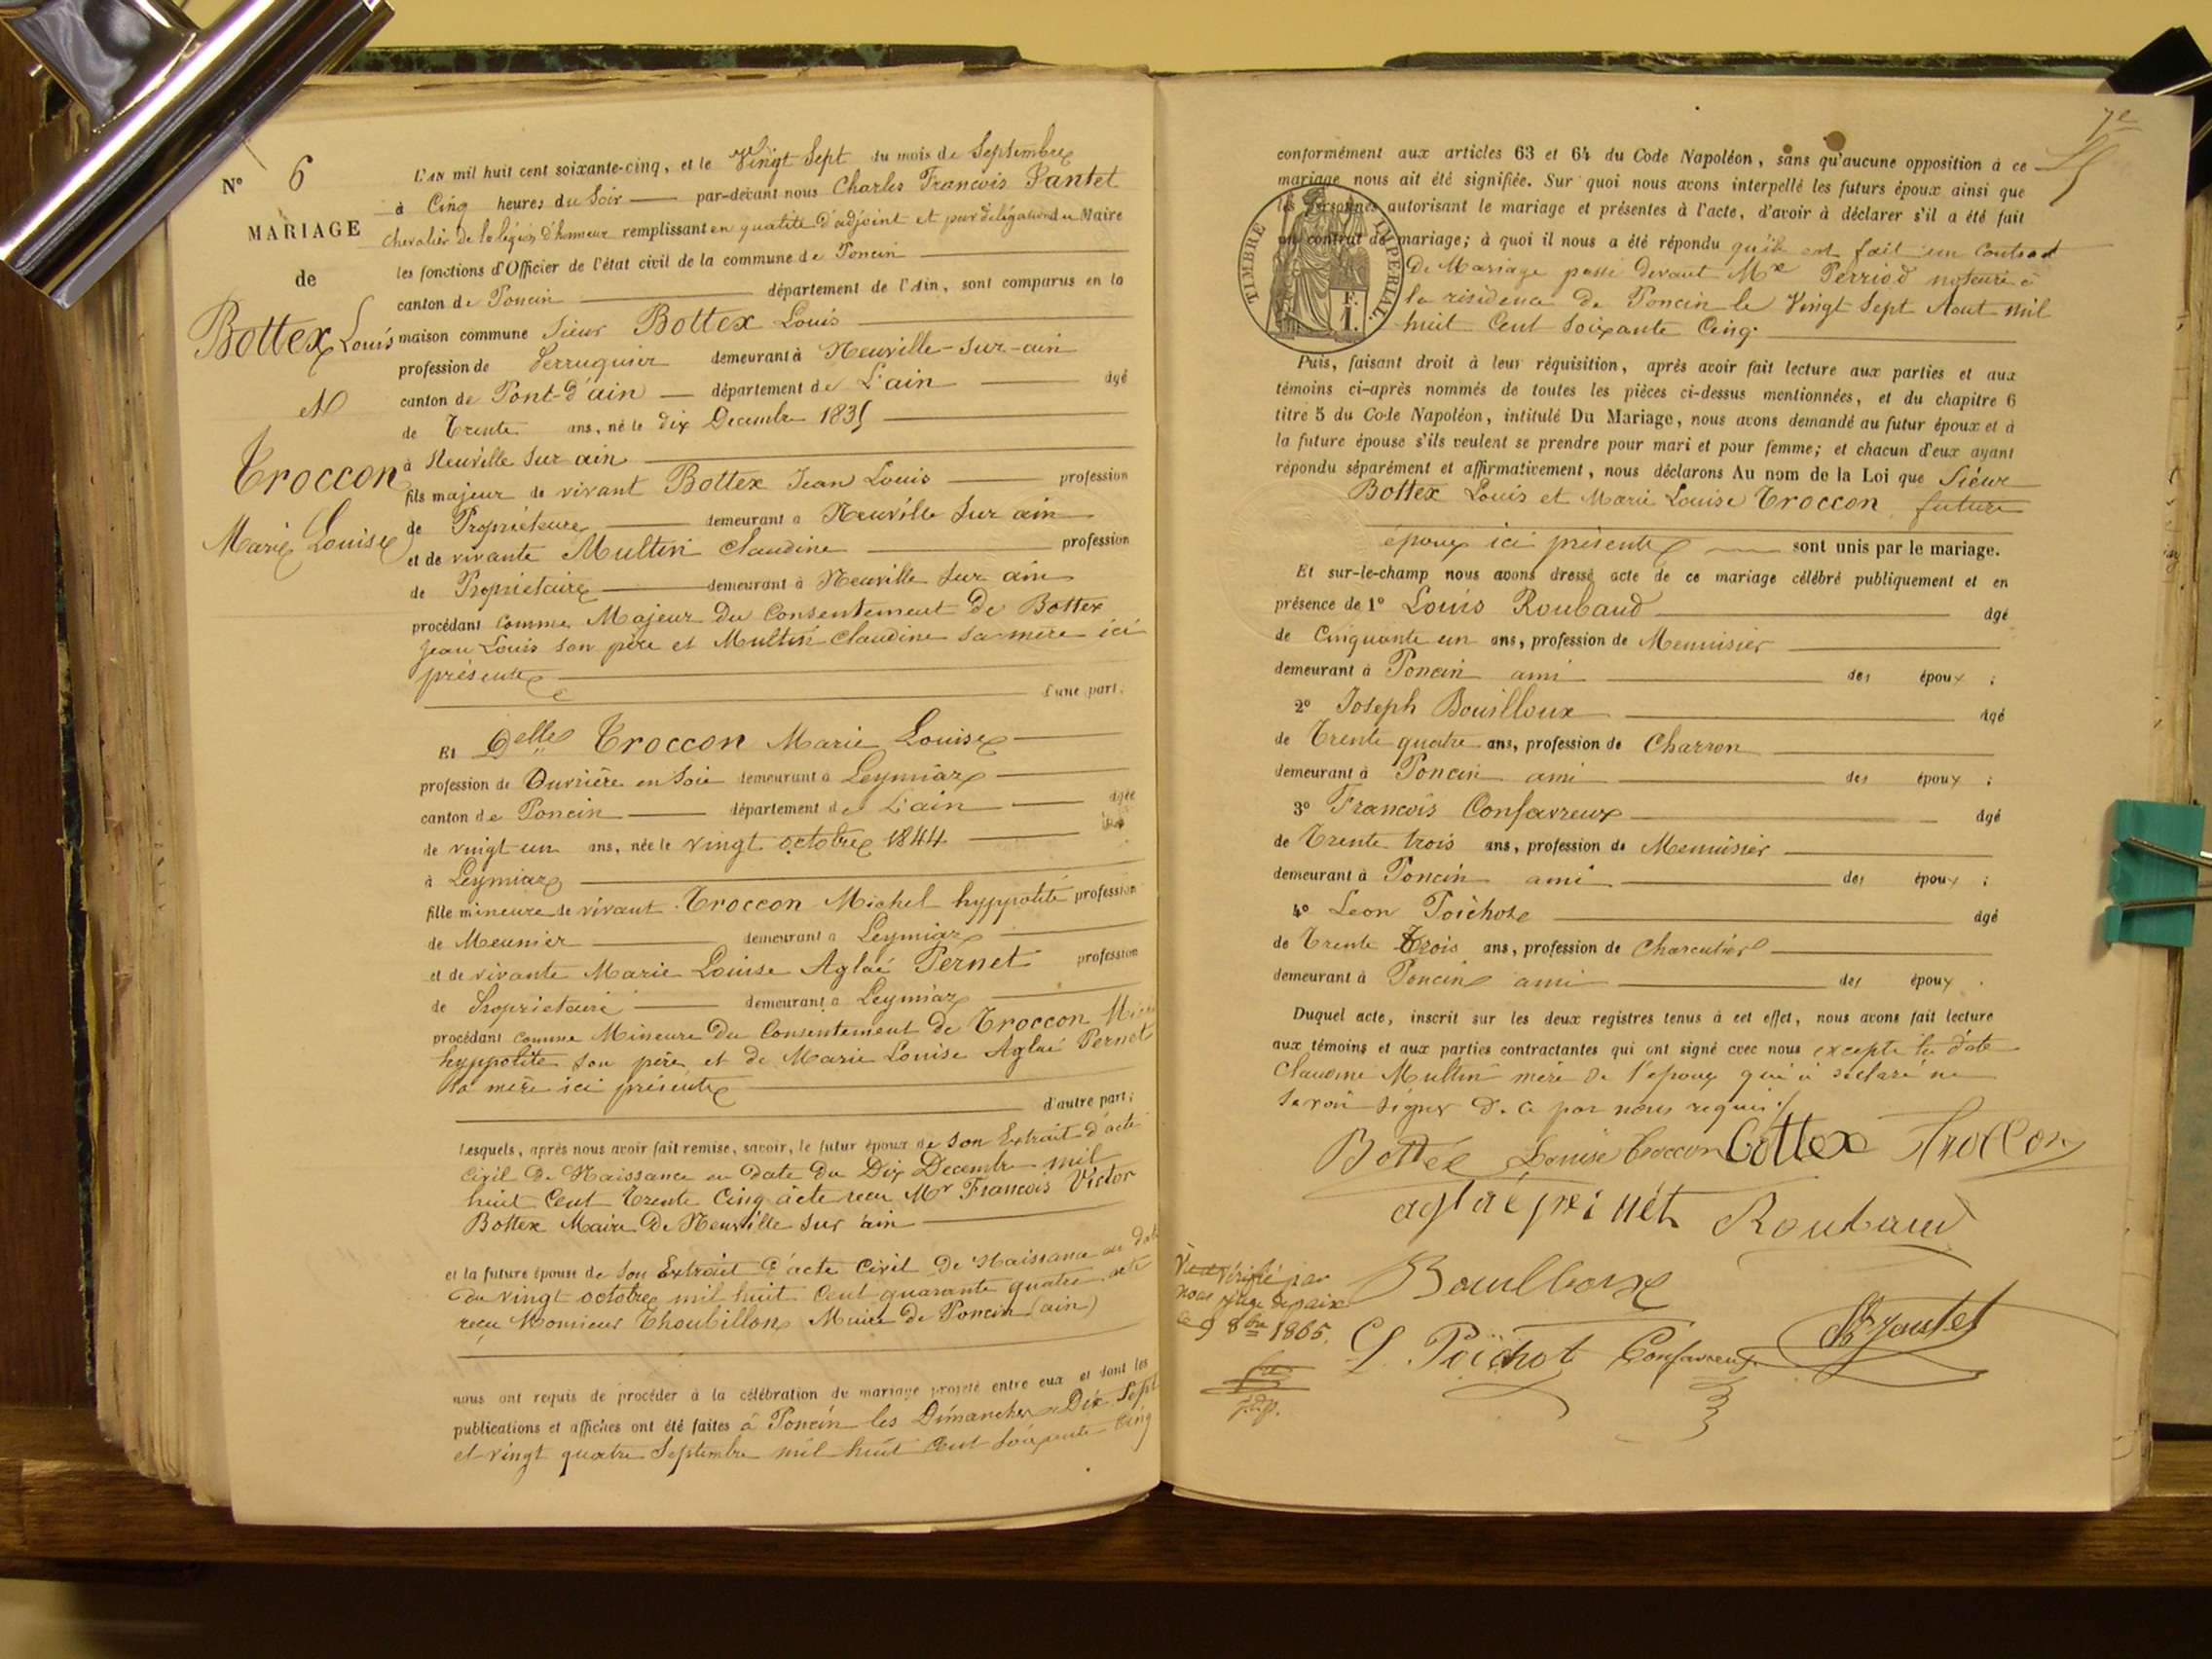 N° 6
MARIAGE
de
Bottex Louis
et
Troccon
Marie Louise
L'AN mil huit cent soixante-cinq, et le Vingt Sept du mois de Septembre
à Cinq heures du Soir par-devant nous Charles Francois Jantet
Chevalier de la légion d'honneur remplissant en qualité d'adjoint et par délégation du Maire
les fonctions d'Officier de l'état civil de la commune de Poncin
canton de Poncin département de l'Ain, sont comparus en la
maison commune Sieur Bottex Louis
profession de Perruquier demeurant à Neuville-sur-ain
canton de Pont-d'ain département de L'ain âgé
de Trente ans, né le dix Decembre 1835
à Neuville Sur ain
fils majeur de vivant Bottex Jean Louis profession
de Propriétaire demeurant à Neuville Sur ain
et de vivante Multin Claudine profession
de Propriétaire demeurant à Neuville Sur ain
procédant comme Majeur Du Consentement De Bottex
Jean Louis son père et Multin Claudine sa mère ici
présente
d'une part;
Et Delle Troccon Marie Louise
profession de Ouvrière en Soie demeurant à Leymiaz
canton de Poncin département de L'ain âgée
de vingt un ans, née le vingt octobre 1844
à Leymiaz
fille mineure de vivant Troccon Michel hyppolite profession
de Meunier demeurant à Leymiaz
et de vivante Marie Louise Aglaé Pernet profession
de Propriétaire demeurant à Leymiaz
procédant comme Mineure Du Consentement de Troccon
hyppolite son père et de Marie Louise Aglaé Pernet
sa mère ici présente
d'autre part;
Lesquels, après nous avoir fait remise, savoir, le futur époux de son Extrait d'acte
Civil De Naissance en date du Dix Decembre mil
huit Cent Trente Cinq acte recu Mr Francois Victor
Bottex Maire De Neuville sur ain
et la future épouse de son Extrait d'acte Civil De Naissance en date
du vingt octobre mil huit Cent quarante quatre acte
reçu Monsieur Thoubillon Maire De Poncin (ain)
nous ont requis de procéder à la célébration du mariage projeté entre eux et dont les
publications et affiches ont été faites à Poncin les Dimanches Dix Sept
et vingt quatre Septembre mil huit Cent Soixante Cinq
7e
conformément aux articles 63 et 64 du Code Napoléon, sans qu'aucune opposition à ce
mariage nous ait été signifiée. Sur quoi nous avons interpellé les futurs époux ainsi que
les personnes autorisant le mariage et présentes à l'acte, d'avoir à déclarer s'il a été fait
un contrat de mariage; à quoi il nous a été répondu qu'ils ont fait un Contrat
De Mariage passé devant Me Perriod notaire à
la résidence de Poncin le Vingt Sept Aout mil
huit Cent Soixante Cinq.
TIMBRE IMPERIAL.
F.
1.
Puis, faisant droit à leur réquisition, après avoir fait lecture aux parties et aux
témoins ci-après nommés de toutes les pièces ci-dessus mentionnées, et du chapitre 6
titre 5 du Code Napoléon, intitulé Du Mariage, nous avons demandé au futur époux et à
la future épouse s'ils veulent se prendre pour mari et pour femme; et chacun d'eux ayant
répondu séparément et affirmativement, nous déclarons Au nom de la Loi que Sieur
Bottex Louis et Marie Louise Troccon future
épouse ici présente sont unis par le mariage.
Et sur-le-champ nous avons dressé acte de ce mariage célébré publiquement et en
présence de 1° Louis Roubaud âgé
de Cinquante un ans, profession de Menuisier
demeurant à Poncin ami des époux ;
2° Joseph Bouilloux âgé
de Trente quatre ans, profession de Charron
demeurant à Poncin ami des époux ;
3° Francois Confavreux âgé
de Trente trois ans, profession de Menuisier
demeurant à Poncin ami des époux ;
4° Leon Poichot âgé
de Trente trois ans, profession de Charcutier
demeurant à Poncin ami des époux .
Duquel acte, inscrit sur les deux registres tenus à cet effet, nous avons fait lecture
aux témoins et aux parties contractantes qui ont signé avec nous excepté la dâte
Claudine Multin mère de l'epoux qui a déclaré ne
Savoir signer d. ce par nous requis
Bottex Louise Troccon Bottex Troccon
aglaé pernét Roubaud
Bouilloux
Vérifié par
nous juge de paix
ce 9 8bre 1865.
L. Poichot Confavreux Ch Jantet
j.d.p.